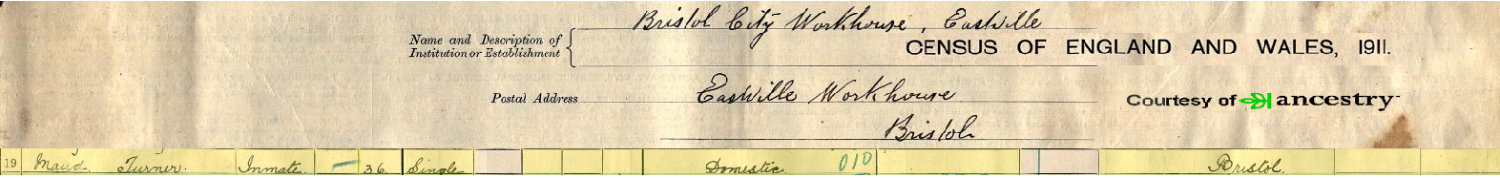 Bristol City Workhouse, Eastville
Name and Description of
Institution or Establishment
CENSUS OF ENGLAND AND WALES, 1911.
Postal Address
Eastville Workhouse
Courtesy of ancestry
Bristol
19 Maud Turner. Inmate — 36 Single Domestic 010 Bristol.